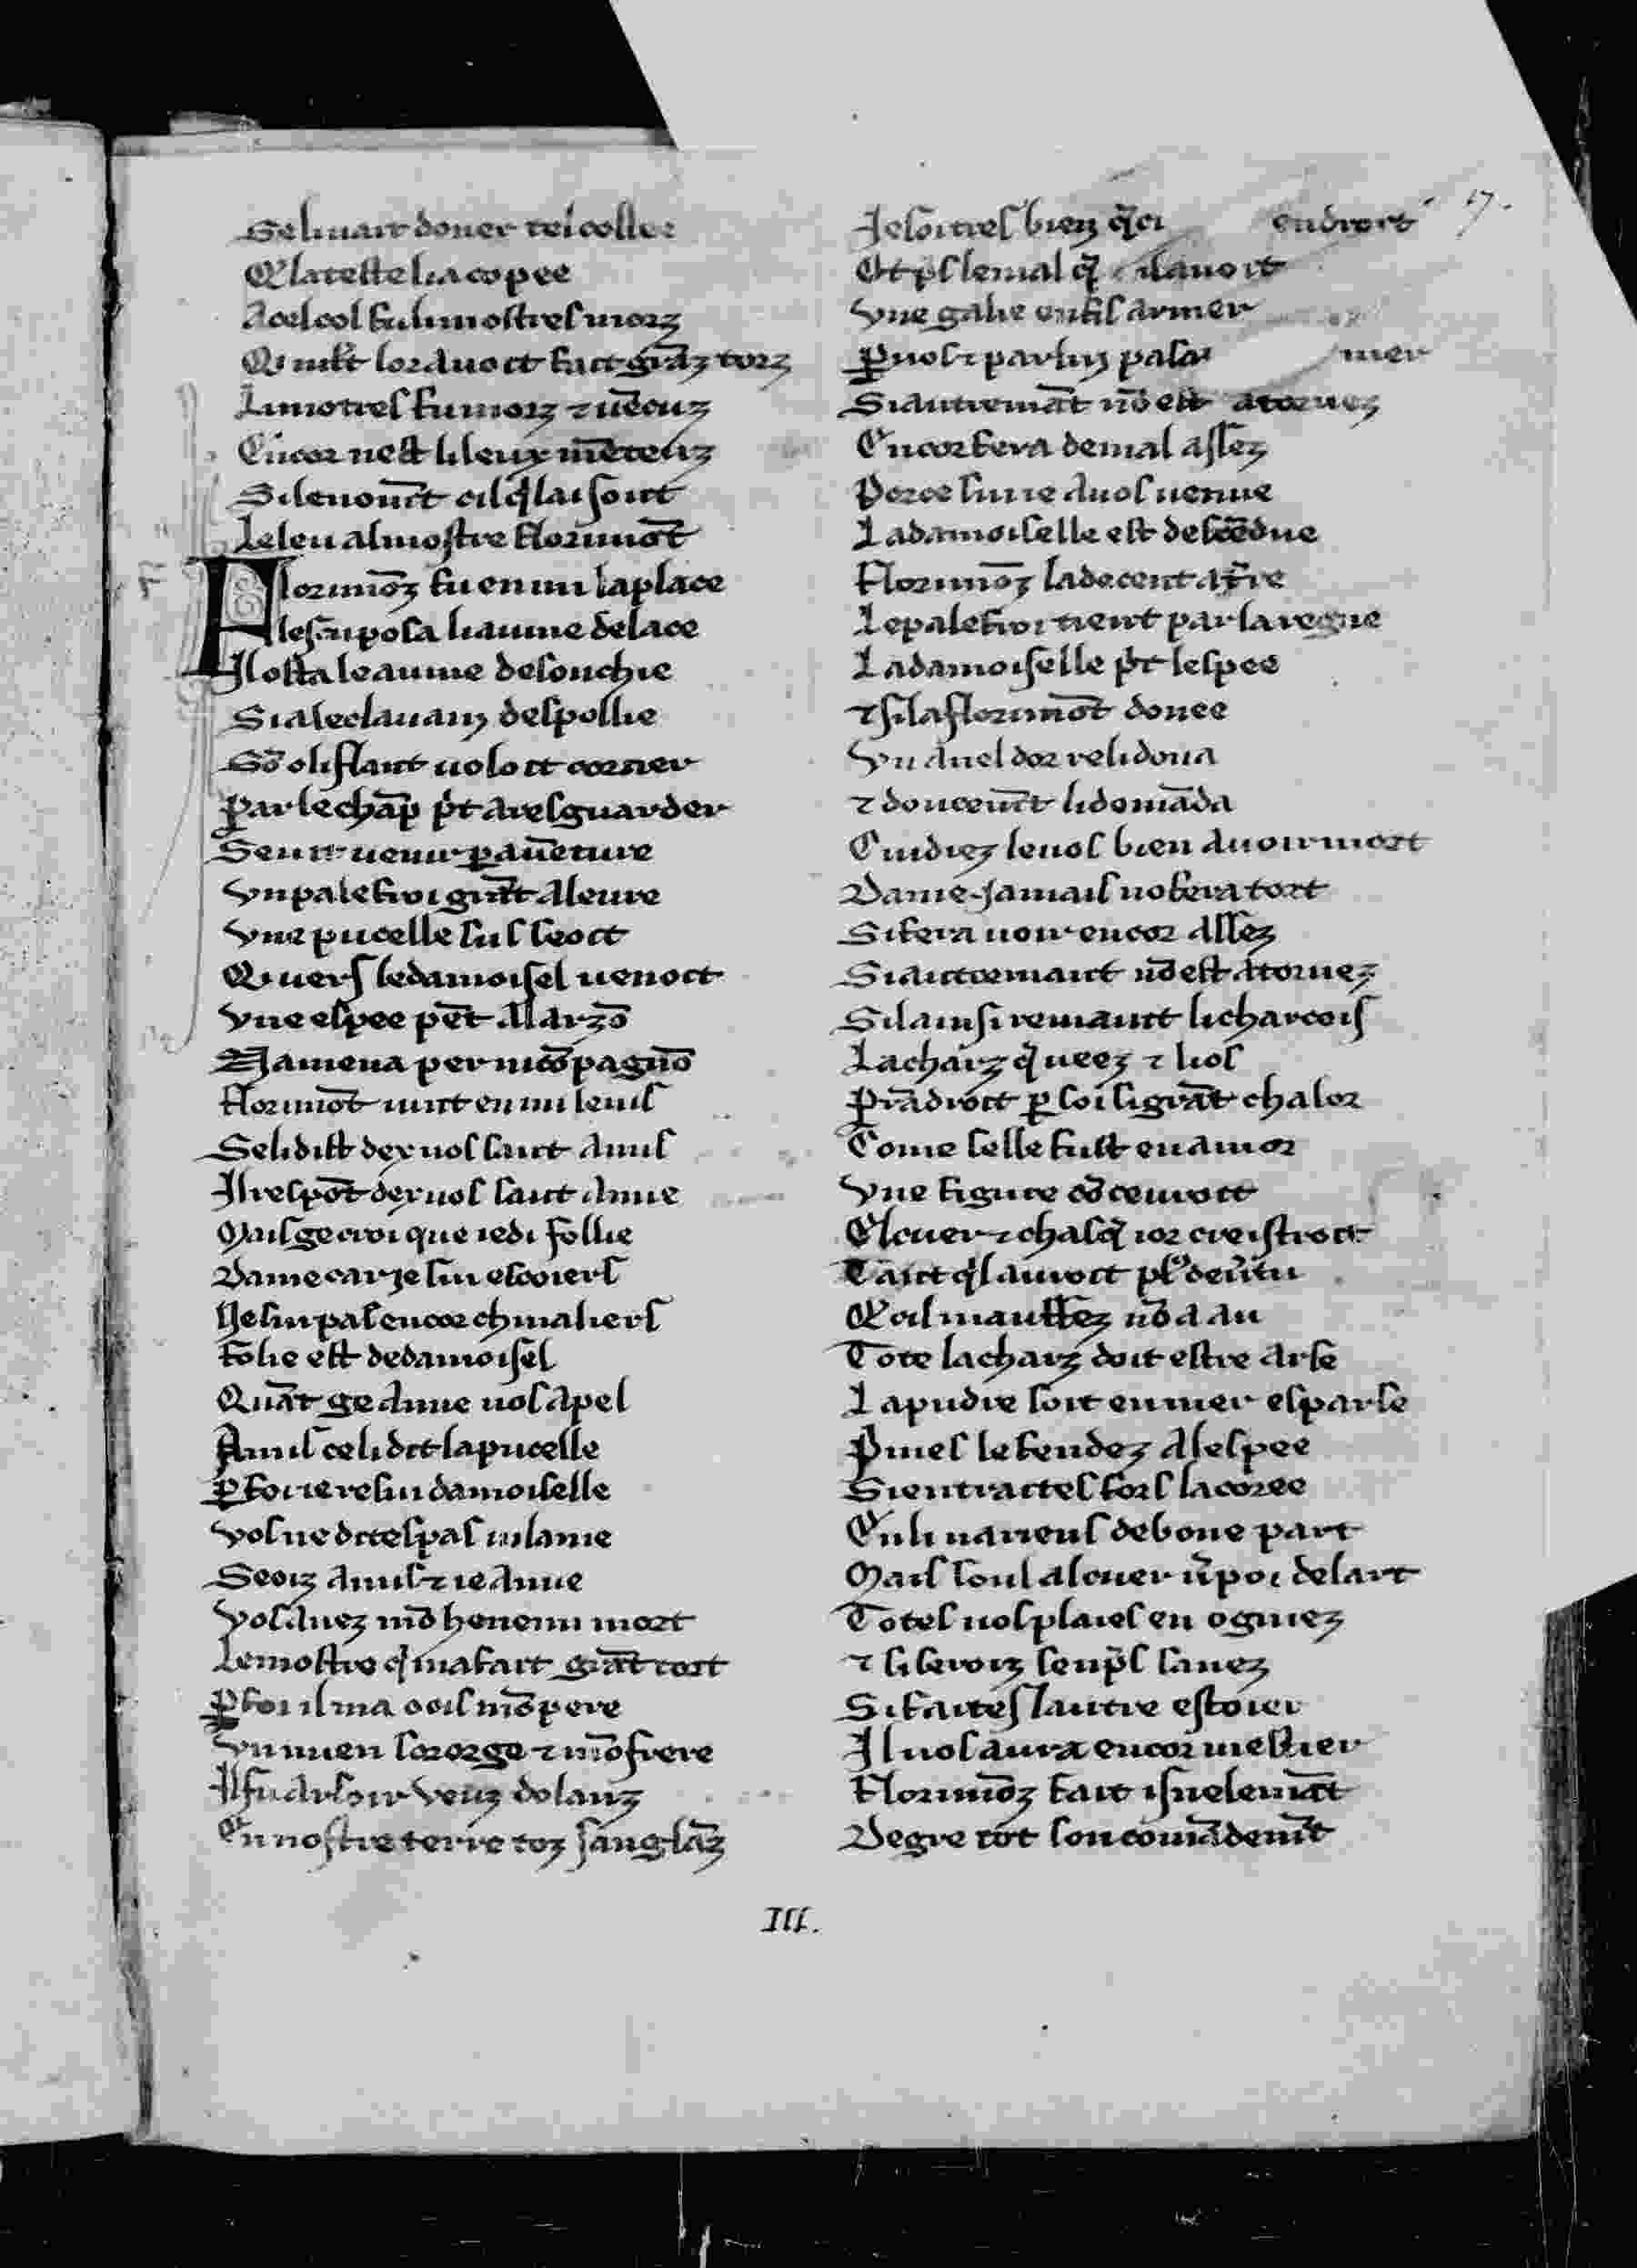 Se li uait doner tel collee
Q̃ la teste li a copee
A cel col fu li mostres morz
Qi mlt̃ lor auoit fait grãz torz
Li mostres fu morz ⁊ uẽcuz
Encor nest li leux mẽteuz
Si le nomẽt cil q̃ la i sont
Le leu al mostre florimõt
Florimõz fu en mi la place
Ilosta le aume de son chie
Si a le clauain despollie
Sõ olifant uoloit corner
Par le chãp p̃t a resguarder
Seu it uenir p auẽture
Vn palefroi grãt aleure
Vne pucelle sus seoit
Qi uers le damoisel uenoit
Vne espee pẽt all arzõ
Namena per ni cõpagnõ
florimõt uint en mi le uis
Se li dist dex uos saut amis
Il respõt dex uos saut amie
Mais ge croi que ie di follie
Dame car ie sui escoiers
Ne sui pas encor chiualiers
Folie est de damoisel
Quãt ge amie uos apel
Amis ce li dit la pucelle
P foi ie resui damoiselle
Vos ne dites pas uilanie
Seoiz amis ⁊ ie amie
Vos auez mõ henemi mort
Le mostre q̃ ma fait grãt tort
P foi il ma ocis mõ pere
Vn mien sororge ⁊ mõ frere
En nostre terre toz sanglãz
Ie soi tres bien q̃ ci endroit
Et p̃s le mal q̃ il auoit
Vne galie en fis armer
P uos i par lin pasai mer
Si autremãt nõ est atornez
Encor fera de mal assez
Por ce sui ie a uos uenue
La damoiselle est descẽdue
Florimõz la decent a t̃re
Le palefroi tient par la regne
La damoiselle p̃t lespee
⁊ si la florimõt donee
Vn anel dor reli dona
⁊ doucemẽt li demãda
Cuidiez le uos bien auoir mort
Dame iamais no fera tort
Si fera uoir encor assez
Si autremant nõ est atornez
Si lainsi remaint li charcois
La charz q̃ ueez ⁊ li os
Prãdroit p soi si grãt chalor
Come selle fust en amor
Vne figure cõceuroit
El cuer ⁊ chasq̃ ior creistroit
Tant q̃l auroit pl᷒ de ũtu
Q̃ cil mauffez nõ a au
Tote la charz doit estre arse
La pudre soit en mer esparse
P̃mes le fendez a lespee
Si en traites fors la coree
En li na riens de bone part
Mais soul al cuer ũ poi de lart
Totes uos plaies en ogniez
⁊ si seroiz senp̃s sanez
Si faites lautre estoier
Il uos aura encor mestier
Florimõz fait isnelemãt
De gre tot son comãdemẽt
III.